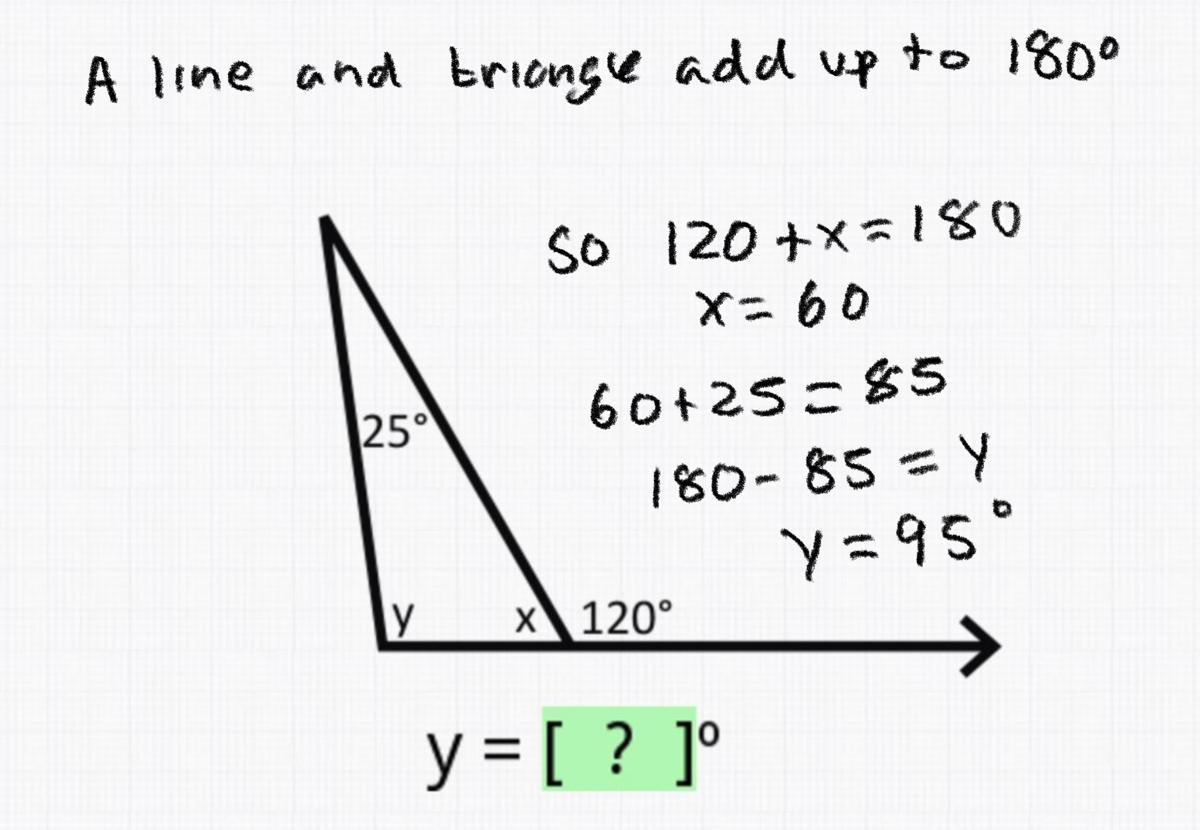 A line and triangle add up to 180°
So 120 + x = 180
x = 60
60 + 25 = 85
25°
180 - 85 = y
y = 95°
y x 120°
y = [ ? ]°